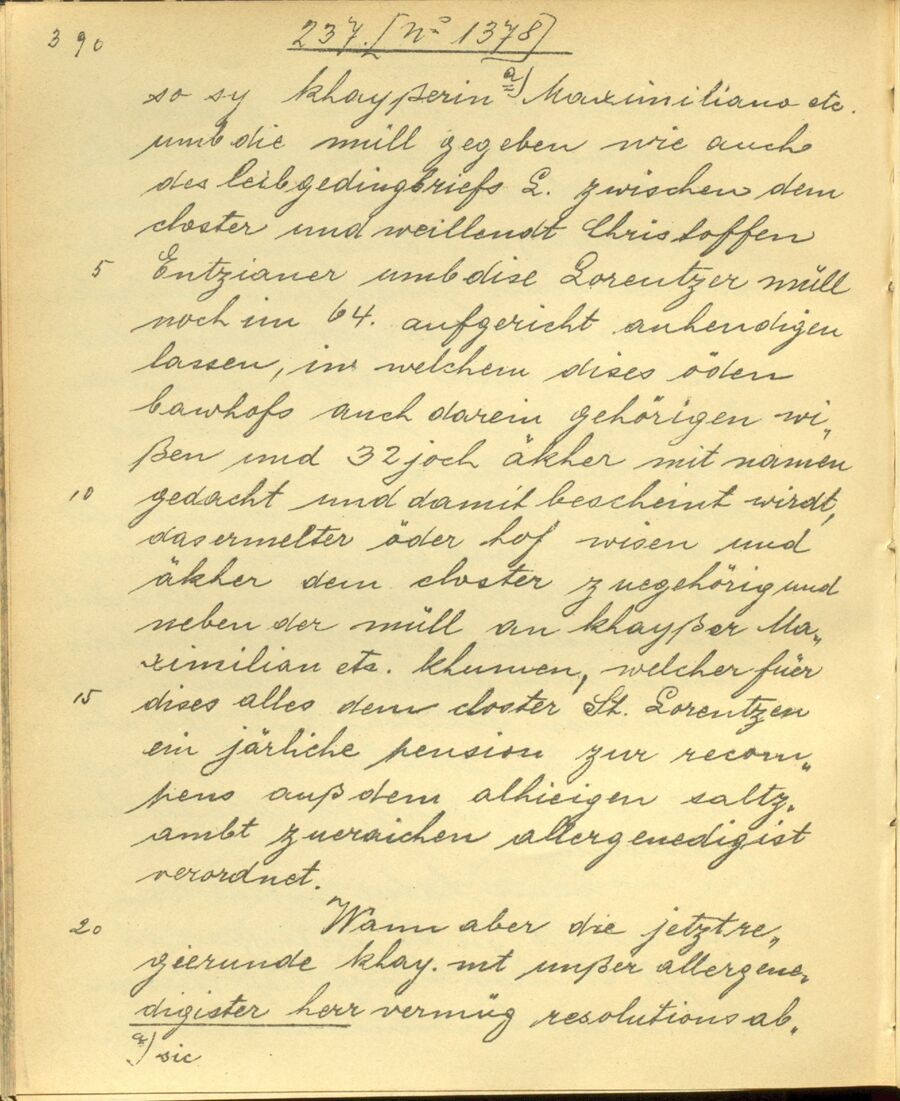 390
237. [Nº 1378]
so sy khayßerin a) Maximiliano etc.
umb die müll gegeben wie auch
des leibgedingbriefs L. zwischen dem
closter und weillendt Christoffen
5 Entzianer umb dise Lorentzer müll
noch im 64. aufgericht anhendigen
lassen, in welchem dises öden
bawhofs auch darein gehörigen wi„
ßen und 32 joch äkher mit namen
10 gedacht und damit bescheint wirdt,
das ermelter öder hof wisen und
äkher dem closter zuegehörig und
neben der müll an khayßer Ma„
ximilian etc. khumen, welcher füer
15 dises alles dem closter St. Lorentzen
ein järliche pension zur recom„
pens auß dem alhieigen saltz„
ambt zueraichen allergenedigist
verordnet.
20 Wann aber die jetzt re„
gierunde khay. mt unßer allergene„
digister herr vermüg resolutions ab„
a) sic